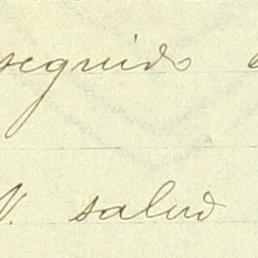 seguido
V. salud